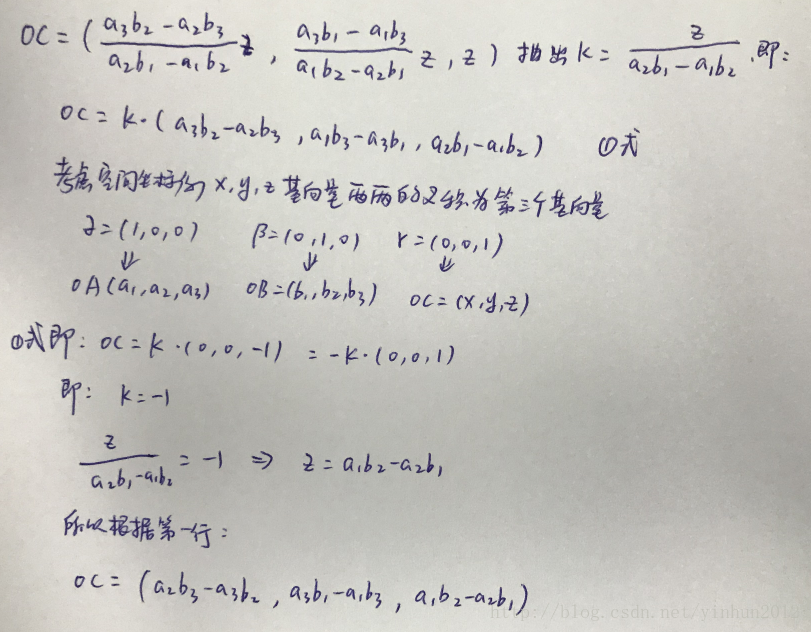 OC = ( \frac{a₃b₂-a₂b₃}{a₂b₁-a₁b₂} z , \frac{a₃b₁-a₁b₃}{a₁b₂-a₂b₁} z , z ) 抽出 k = \frac{z}{a₂b₁-a₁b₂} .即:
OC = k·( a₃b₂-a₂b₃ , a₁b₃-a₃b₁ , a₂b₁-a₁b₂ ) ①式
考虑空间坐标的 x,y,z 基向量两两的叉乘为第三个基向量
∂=(1,0,0) β=(0,1,0) r=(0,0,1)
⇓ ⇓ ⇓
OA(a₁,a₂,a₃) OB=(b₁,b₂,b₃) OC=(x,y,z)
①式即: OC = k·(0,0,-1) = -k·(0,0,1)
即: k=-1
\frac{z}{a₂b₁-a₁b₂} = -1 ⇒ z = a₁b₂-a₂b₁
所以根据第一行:
OC = (a₂b₃-a₃b₂ , a₃b₁-a₁b₃ , a₁b₂-a₂b₁)